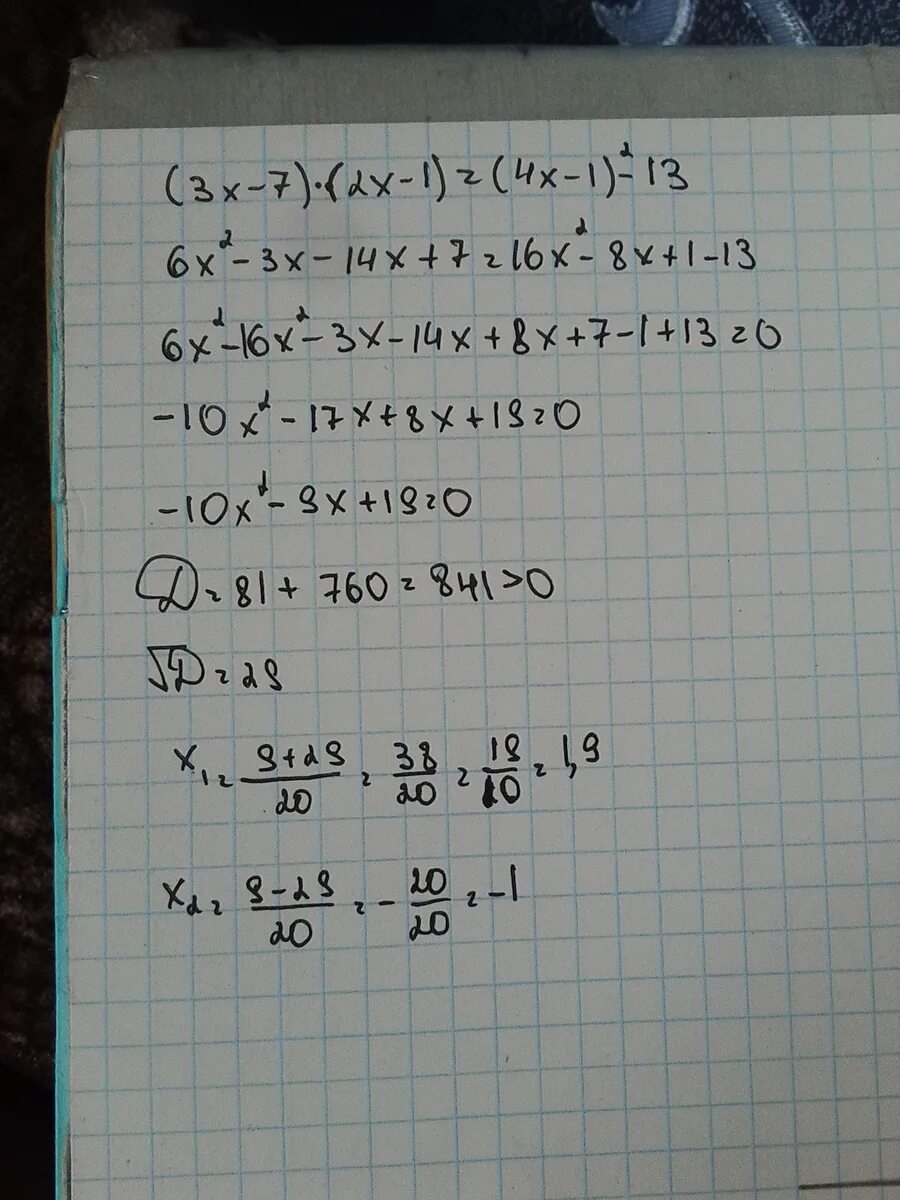 (3x-7)·(2x-1)=(4x-1)²-13
6x²-3x-14x+7=16x²-8x+1-13
6x²-16x²-3x-14x+8x+7-1+13=0
-10x²-17x+8x+19=0
-10x²-9x+19=0
D=81+760=841>0
√D=29
x₁=(9+29)/20=38/20=19/10=1,9
x₂=(9-29)/20=-20/20=-1